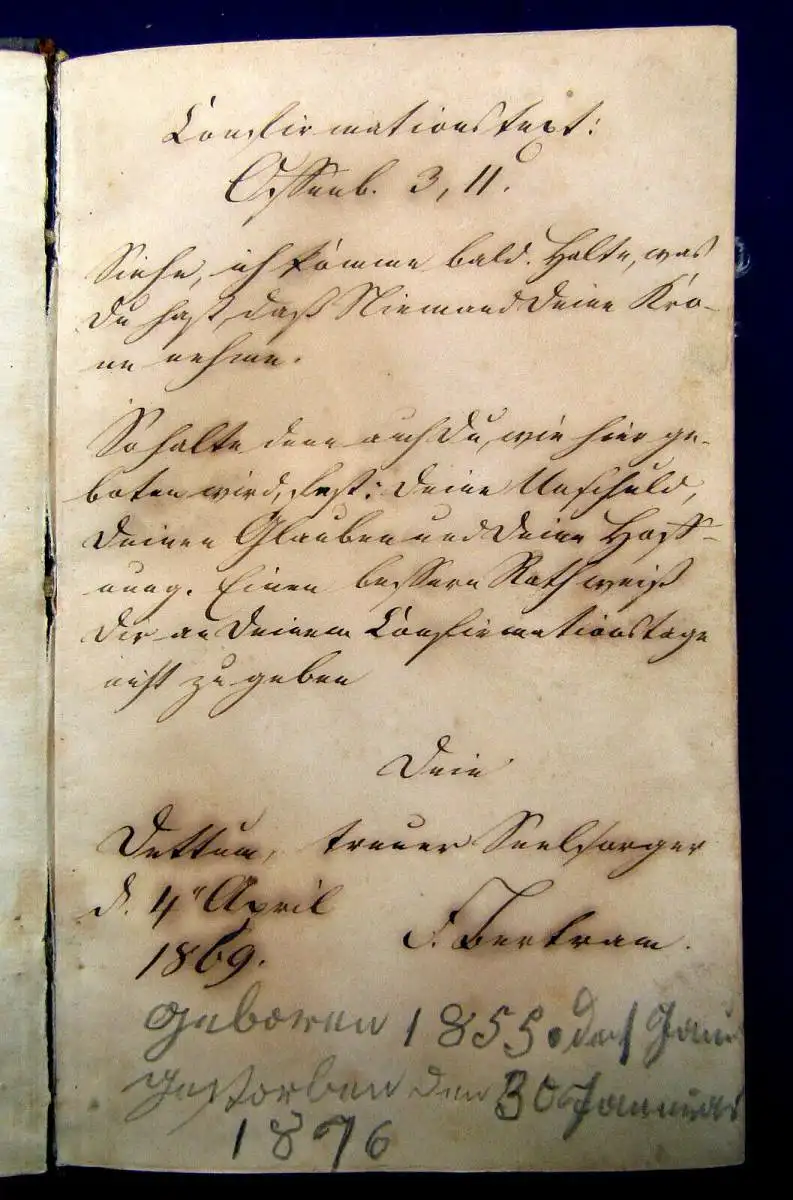 Confirmationstext:
Offenb. 3, 11.
Siehe, ich komme bald. Halte, was
Du hast, daß Niemand Deine Kro-
ne nehme.
So halte denn auch Du, wie hier ge-
boten wird, fest: Deine Unschuld,
Deinen Glauben und Deine Hoff-
nung. Einen bessern Rath weiß
Dir an Deinem Confirmationstage
nicht zu geben
Dein
Dettum, treuer Seelsorger
d. 4t April
1869.
F. Bertram.
geboren 1855. d
gestorben den 30 Januar
1876